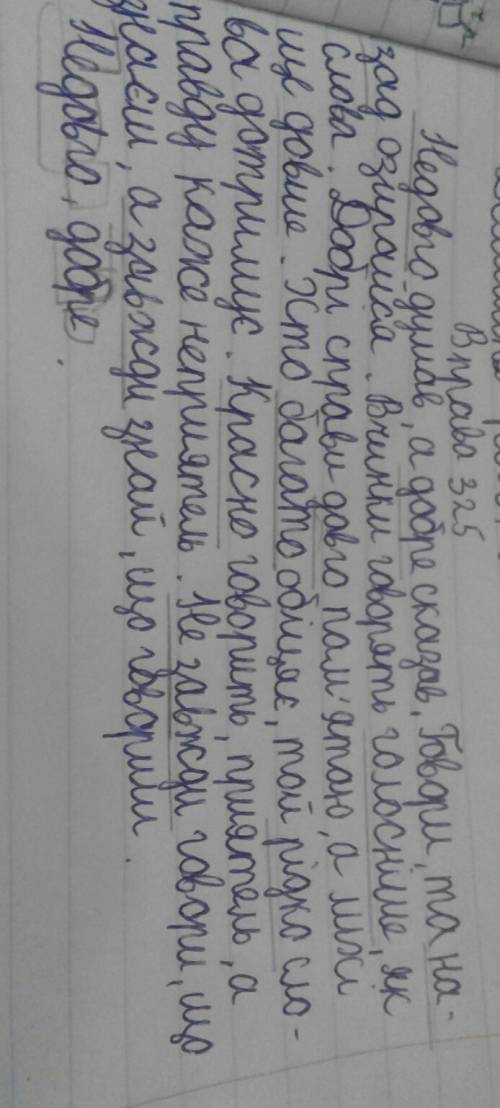 Вправа 325
Недовго думав, а добре сказав. Говори, та на-
зад озирайся. Вчинки говорять голосніше, як
слова. Добрі справи довго пам'ятаю, а лихі
ще довше. Хто багато обіцяє, той рідко сло-
ва дотримує. Красно говорить приятель, а
правду каже неприятель. Не завжди говори, що
знаєш, а завжди знай, що говориш.
Недовго, добре.